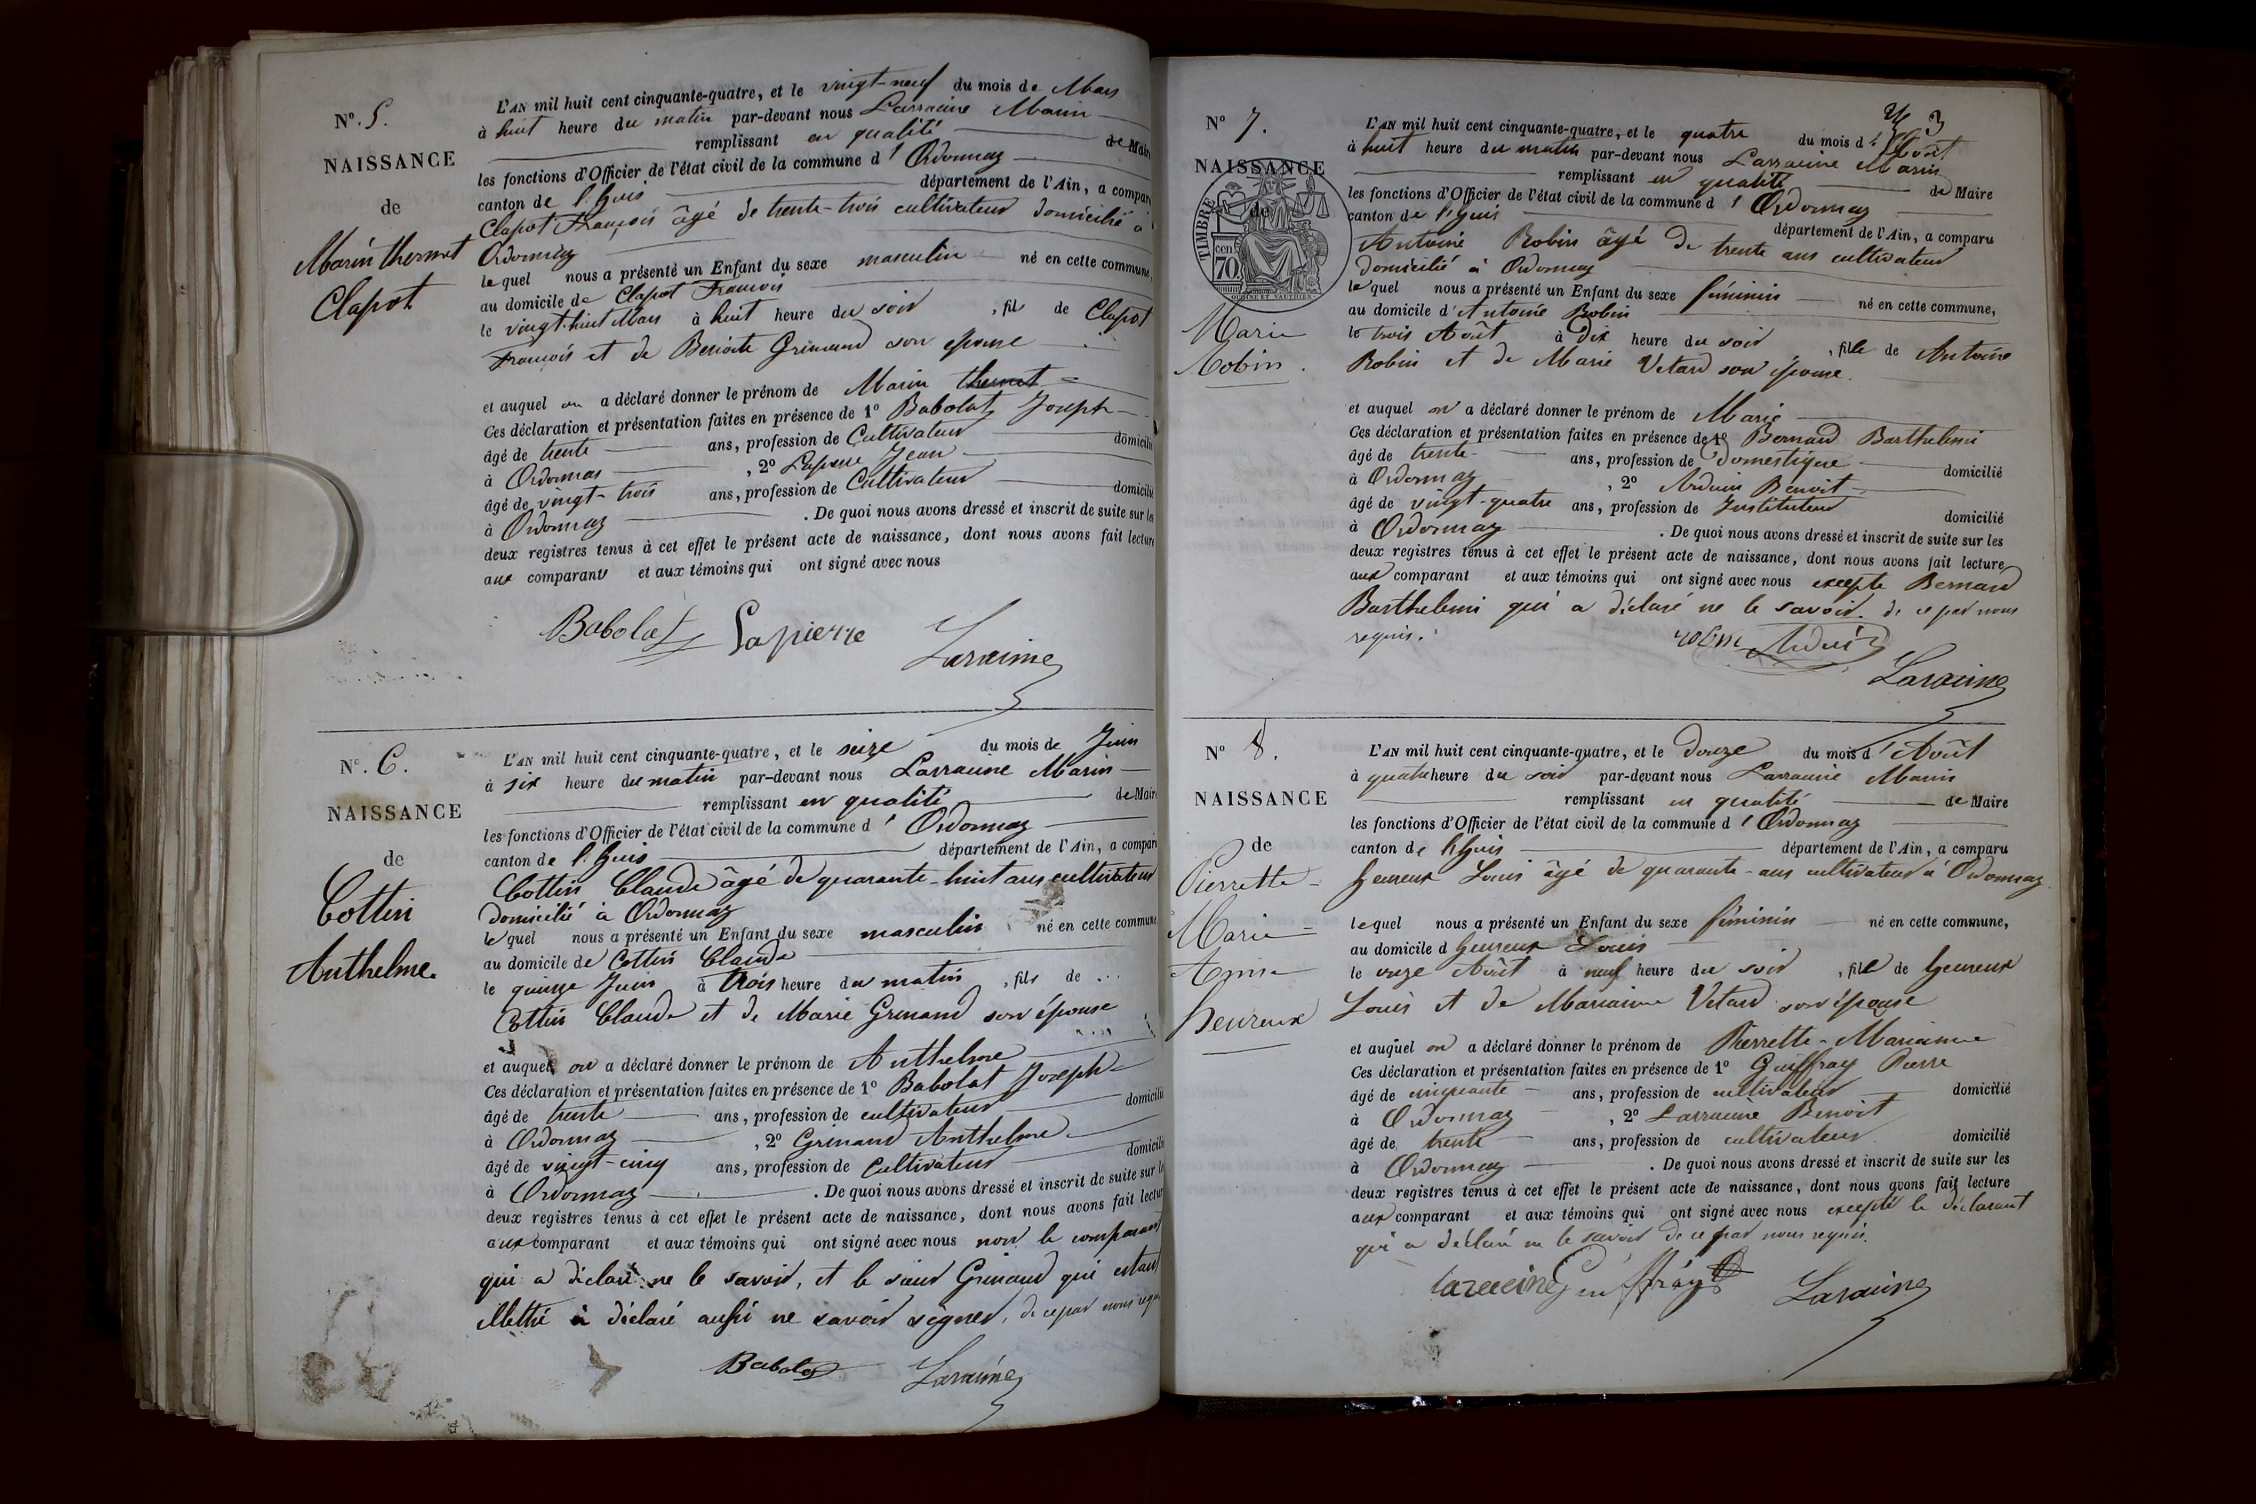 N.º 5.
NAISSANCE
de
Marin thermet
Clapot
L'AN mil huit cent cinquante-quatre, et le vingt-neuf du mois de Mars
à huit heure du matin par-devant nous Larracine Marin
remplissant en qualité de Maire
les fonctions d'Officier de l'état civil de la commune d' Ordonnaz
canton de l'huis département de l'Ain, a comparu
Clapot François âgé de trente-trois cultivateur domicilié à
Ordonnaz
lequel nous a présenté un Enfant du sexe masculin né en cette commune,
au domicile de Clapot François
le vingt-huit Mars à huit heure du soir, fil de Clapot
François et de Benoite Grinand son épouse
et auquel on a déclaré donner le prénom de Marin thermet
Ces déclaration et présentation faites en présence de 1º Babolat Joseph
âgé de trente ans, profession de Cultivateur domicilié
à Ordonnas, 2º Lapierre Jean
âgé de vingt-trois ans, profession de Cultivateur domicilié
à Ordonnaz. De quoi nous avons dressé et inscrit de suite sur les
deux registres tenus à cet effet le présent acte de naissance, dont nous avons fait lecture
aux comparants et aux témoins qui ont signé avec nous
Babolat Lapierre Laracine
N.º 6.
NAISSANCE
de
Cottin
Anthelme.
L'AN mil huit cent cinquante-quatre, et le seize du mois de Juin
à six heure du matin par-devant nous Larracine Marin
remplissant en qualité de Maire
les fonctions d'Officier de l'état civil de la commune d' Ordonnaz
canton de l'huis département de l'Ain, a comparu
Cottin Claude âgé de quarante-huit ans cultivateur
domicilié à Ordonnaz
lequel nous a présenté un Enfant du sexe masculin né en cette commune
au domicile de Cottin Claude
le quinze Juin à trois heure du matin, fils de ...
Cottin Claude et de Marie Grinand son épouse
et auquel on a déclaré donner le prénom de Anthelme
Ces déclaration et présentation faites en présence de 1º Babolat Joseph
âgé de trente ans, profession de cultivateur domicilié
à Ordonnaz, 2º Grinand Anthelme
âgé de vingt-cinq ans, profession de Cultivateur domicilié
à Ordonnaz. De quoi nous avons dressé et inscrit de suite sur les
deux registres tenus à cet effet le présent acte de naissance, dont nous avons fait lecture
aux comparant et aux témoins qui ont signé avec nous non le comparant
qui a déclaré ne le savoir, et le sieur Grinand qui étant
illettré a déclaré aussi ne savoir signer, de ce par nous requis
Babolat Laracine
3
Nº 7.
NAISSANCE
de
TIMBRE
70 cen
Marie
Robin.
L'AN mil huit cent cinquante-quatre, et le quatre du mois d'Août
à huit heure du matin par-devant nous Larracine Marin
remplissant en qualité de Maire
les fonctions d'Officier de l'état civil de la commune d' Ordonnaz
canton de l'huis département de l'Ain, a comparu
Antoine Robin âgé de trente ans cultivateur
domicilié à Ordonnaz
lequel nous a présenté un Enfant du sexe féminin né en cette commune,
au domicile d'Antoine Robin
le trois Août à dix heure du soir, fille de Antoine
Robin et de Marie Vetard son épouse.
et auquel on a déclaré donner le prénom de Marie
Ces déclaration et présentation faites en présence de 1º Bernard Barthelemi
âgé de trente ans, profession de Domestique domicilié
à Ordonnaz, 2º Arduin Benoit
âgé de vingt-quatre ans, profession de Instituteur domicilié
à Ordonnaz. De quoi nous avons dressé et inscrit de suite sur les
deux registres tenus à cet effet le présent acte de naissance, dont nous avons fait lecture
aux comparant et aux témoins qui ont signé avec nous excepté Bernard
Barthelemi qui a déclaré ne le savoir. de ce par nous
requis.
robin Arduin
Laracine
Nº 8.
NAISSANCE
de
Pierrette-
Marie-
Anne
heureux
L'AN mil huit cent cinquante-quatre, et le douze du mois d'Août
à quatre heure du soir par-devant nous Larracine Marin
remplissant en qualité de Maire
les fonctions d'Officier de l'état civil de la commune d' Ordonnaz
canton de l'huis département de l'Ain, a comparu
heureux Louis âgé de quarante-ans cultivateur à Ordonnaz
lequel nous a présenté un Enfant du sexe féminin né en cette commune,
au domicile d heureux Louis
le onze Août à neuf heure du soir, fille de heureux
Louis et de Marianne Vetard son épouse
et auquel on a déclaré donner le prénom de Pierrette-Marianne
Ces déclaration et présentation faites en présence de 1º Guiffray Pierre
âgé de cinquante ans, profession de cultivateur domicilié
à Ordonnaz, 2º Larracine Benoit
âgé de trente ans, profession de cultivateur domicilié
à Ordonnaz. De quoi nous avons dressé et inscrit de suite sur les
deux registres tenus à cet effet le présent acte de naissance, dont nous avons fait lecture
aux comparant et aux témoins qui ont signé avec nous excepté le déclarant
qui a déclaré ne le savoir de ce par nous requis.
laracine Guiffray Laracine